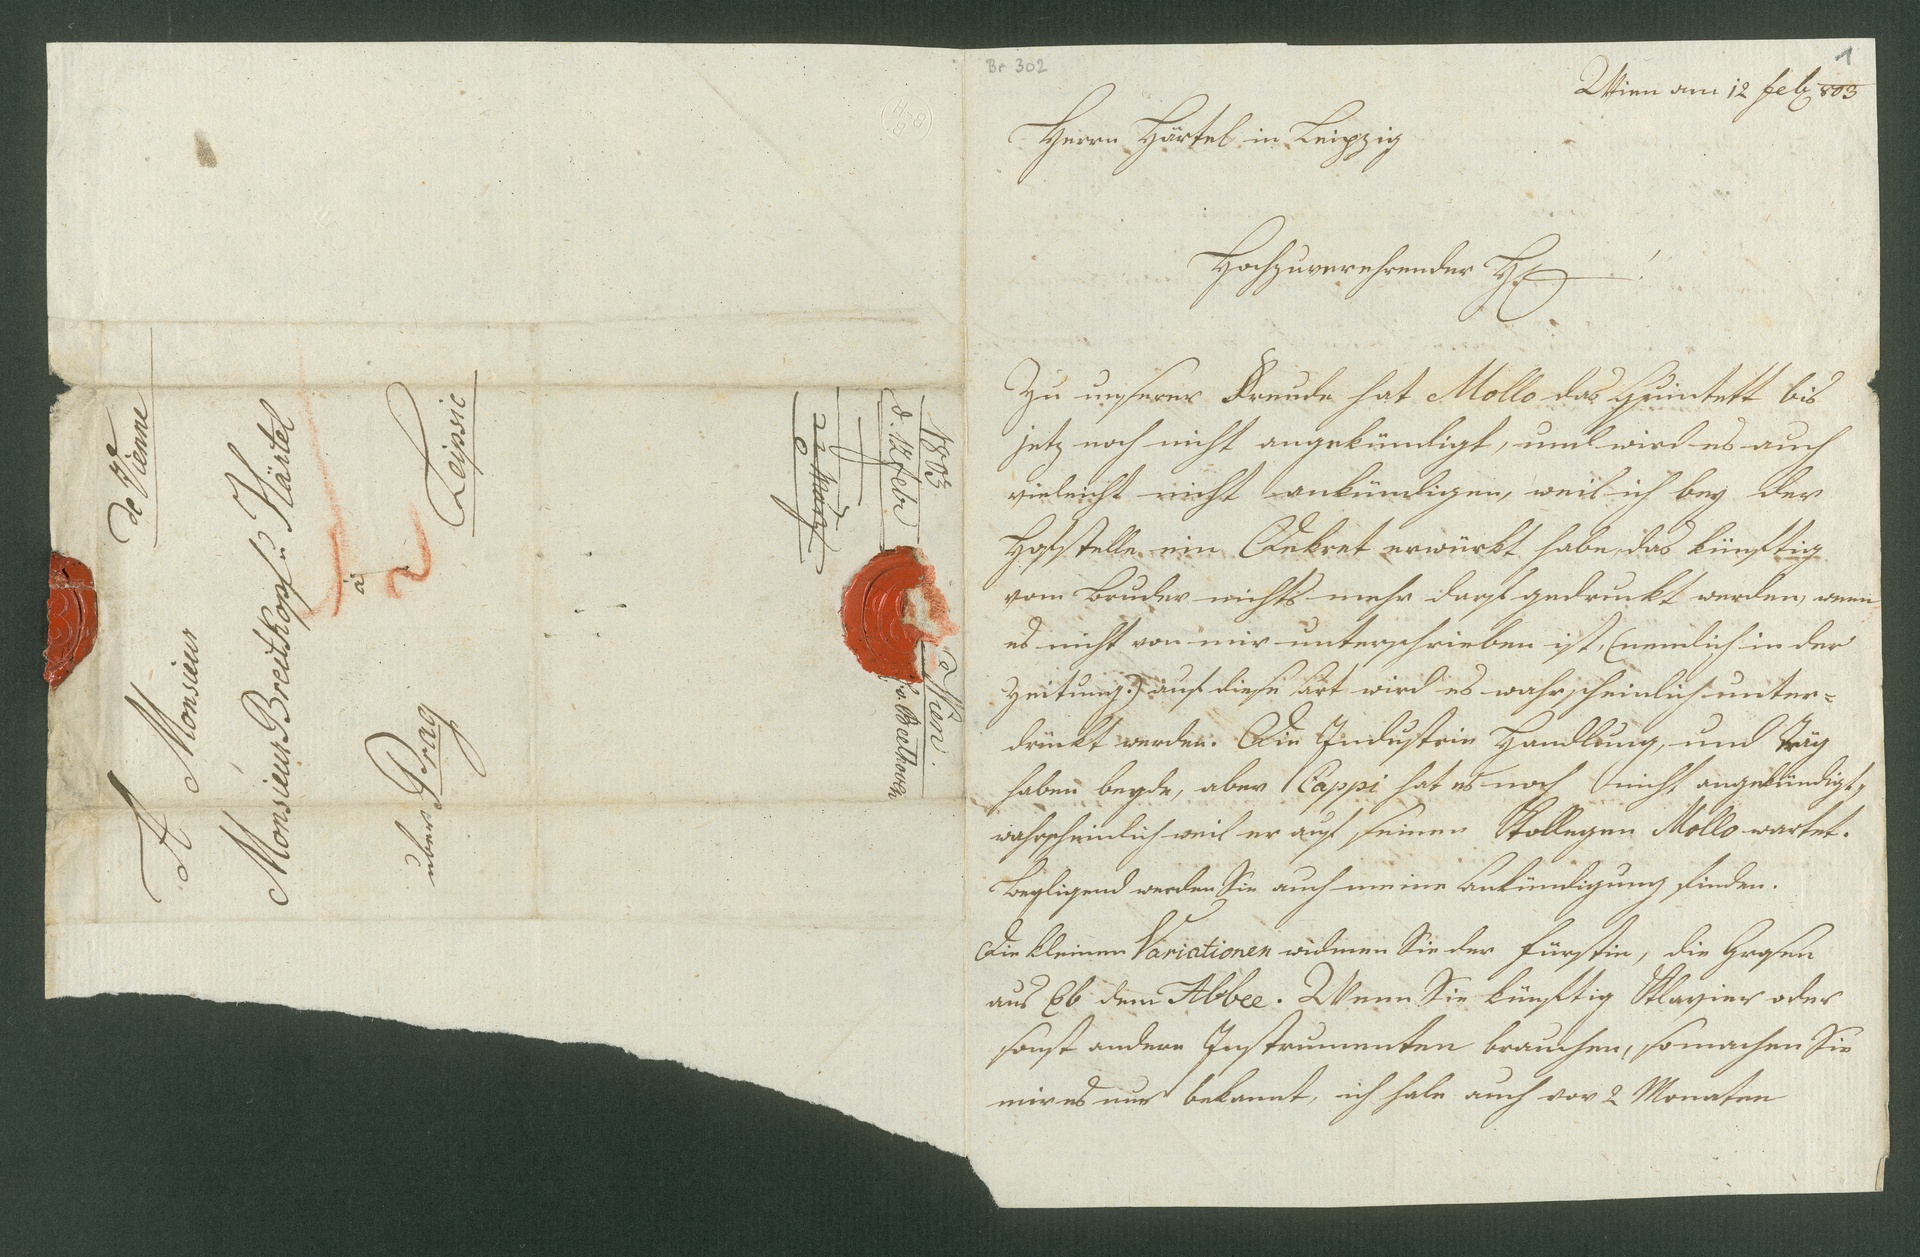 Br 302
1
Wien am 12 feb 803
Herrn Härtel in Leipzig
Hochzuverehrender H
Zu unserer Freude hat Mollo das Quintett bis
jetz noch nicht angekündigt, und wird es auch
vieleicht nicht ankündigen, weil ich bey der
Hofstelle ein Dekret erwürkt habe, das künftig
vom Bruder nichts mehr darf gedruckt werden, wenn
es nicht von mir unterschrieben ist, (nemlich in der
Zeitung.) auf diese art wird es wahrscheinlich unter=
drückt werden. Die Industrie Handlung, und Träg
haben beyde, aber Cappi hat es noch nicht angekündigt,
wahrscheinlich weil er auf seinen Kollegen Mollo wartet.
Beyligend werden Sie auch meine Ankündigung finden.
Die kleinen Variationen widmen Sie der Fürstin, die Grosen
aus Eb dem Abbee. Wenn Sie künftig Klavier oder
sonst andere Instrumenten brauchen, so machen Sie
mir es nur bekannt, ich habe auch vor 2 Monaten
de Vienne
A Monsieur
Monsieur Breitkopf u Härtel
à
Leipsic
über Prag
1803
d. 12 Febr
22
Wien
v. Beethoven